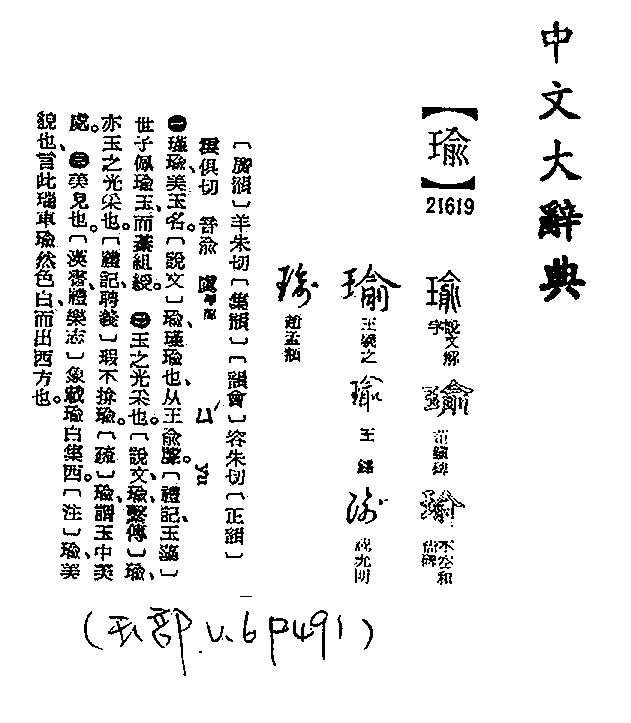 中文大辭典
【瑜】
21619
瑜 說文解字
瑜
瑜 不空和尚碑
瑜 王羲之
瑜 王鐸
瑜 祝允明
瑜 趙孟頫
〔廣韻〕羊朱切〔集韻〕〔韻會〕容朱切〔正韻〕
雲俱切 音兪 虞平聲 ㄩˊ yu
㊀瑾瑜、美玉名。〔說文〕瑜、瑾瑜也、从王兪聲。〔禮記、玉藻〕
世子佩瑜玉、而綦組綬。㊁玉之光采也。〔說文、瑜、繫傳〕瑜、
亦玉之光采也。〔禮記、聘義〕瑕不揜瑜。〔疏〕瑜、謂玉中美
處。㊂美皃也。〔漢書、禮樂志〕象載瑜、白集西。〔注〕瑜、美
貌也、言此瑞車瑜然色白而出西方也。
(玉部.v.6 p491)